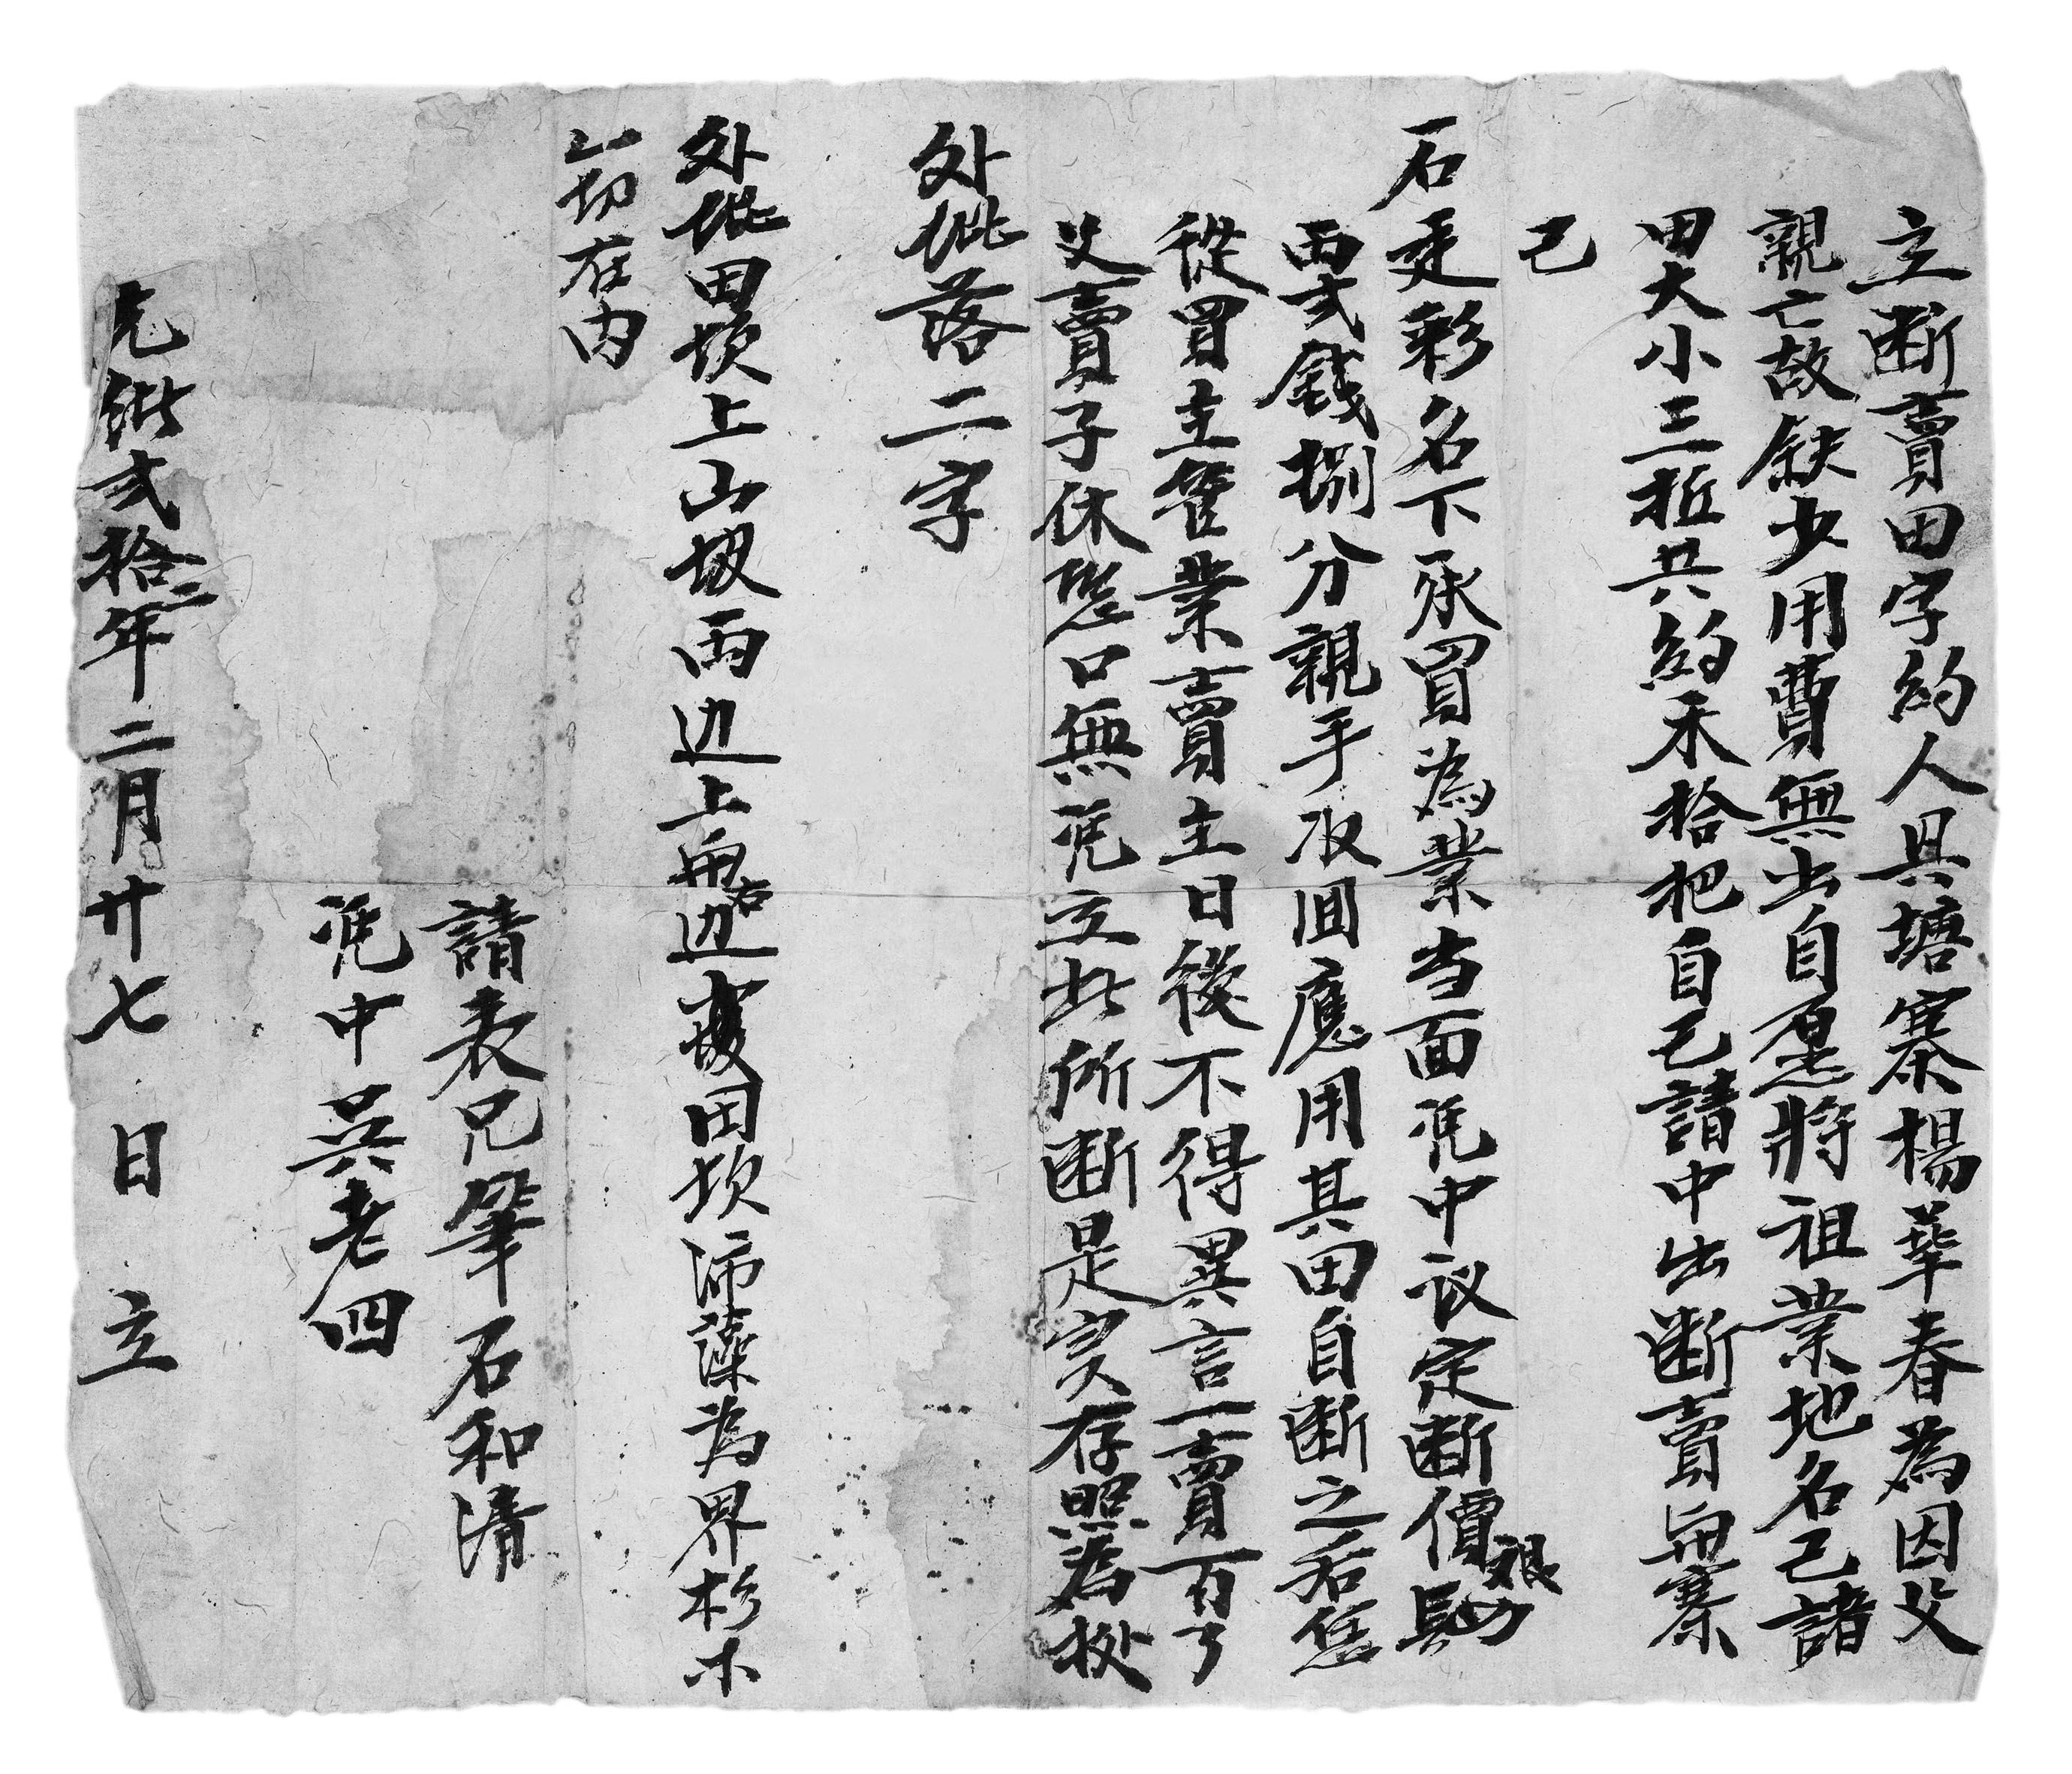 立断賣田字約人具塘寨楊華春為因父
親亡故缺少用費無出自愿將祖業地名己諸
田大小三坵共約禾拾把自己請中出断賣與寨
己
石廷彩名下承買為業当面凴中议定断價銀四
両弍錢捌分親手収回應用其田自断之后恁
從買主管業賣主日後不得異言一賣百了
父賣子休恐口無凴立此所断是实存照為挀
外批落二字
外批田坎上山塝両边上
边 田坎 為界杉木
一切在内
請表兄筆石和清
凴中吳老四
光緒弍拾二年二月廿七日立